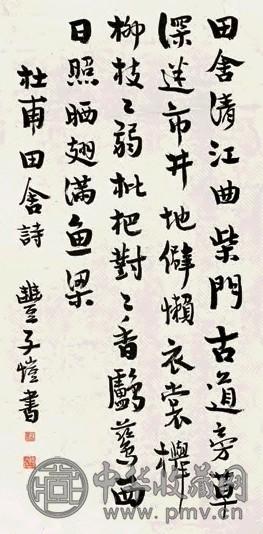 田舍清江曲柴門古道旁草
深迷市井地僻懶衣裳櫸
柳枝〻弱枇杷對〻香鸕鶿西
日照晒翅滿鱼梁
杜甫田舍詩 豐子愷書
中华收藏网
www.pmv.cn